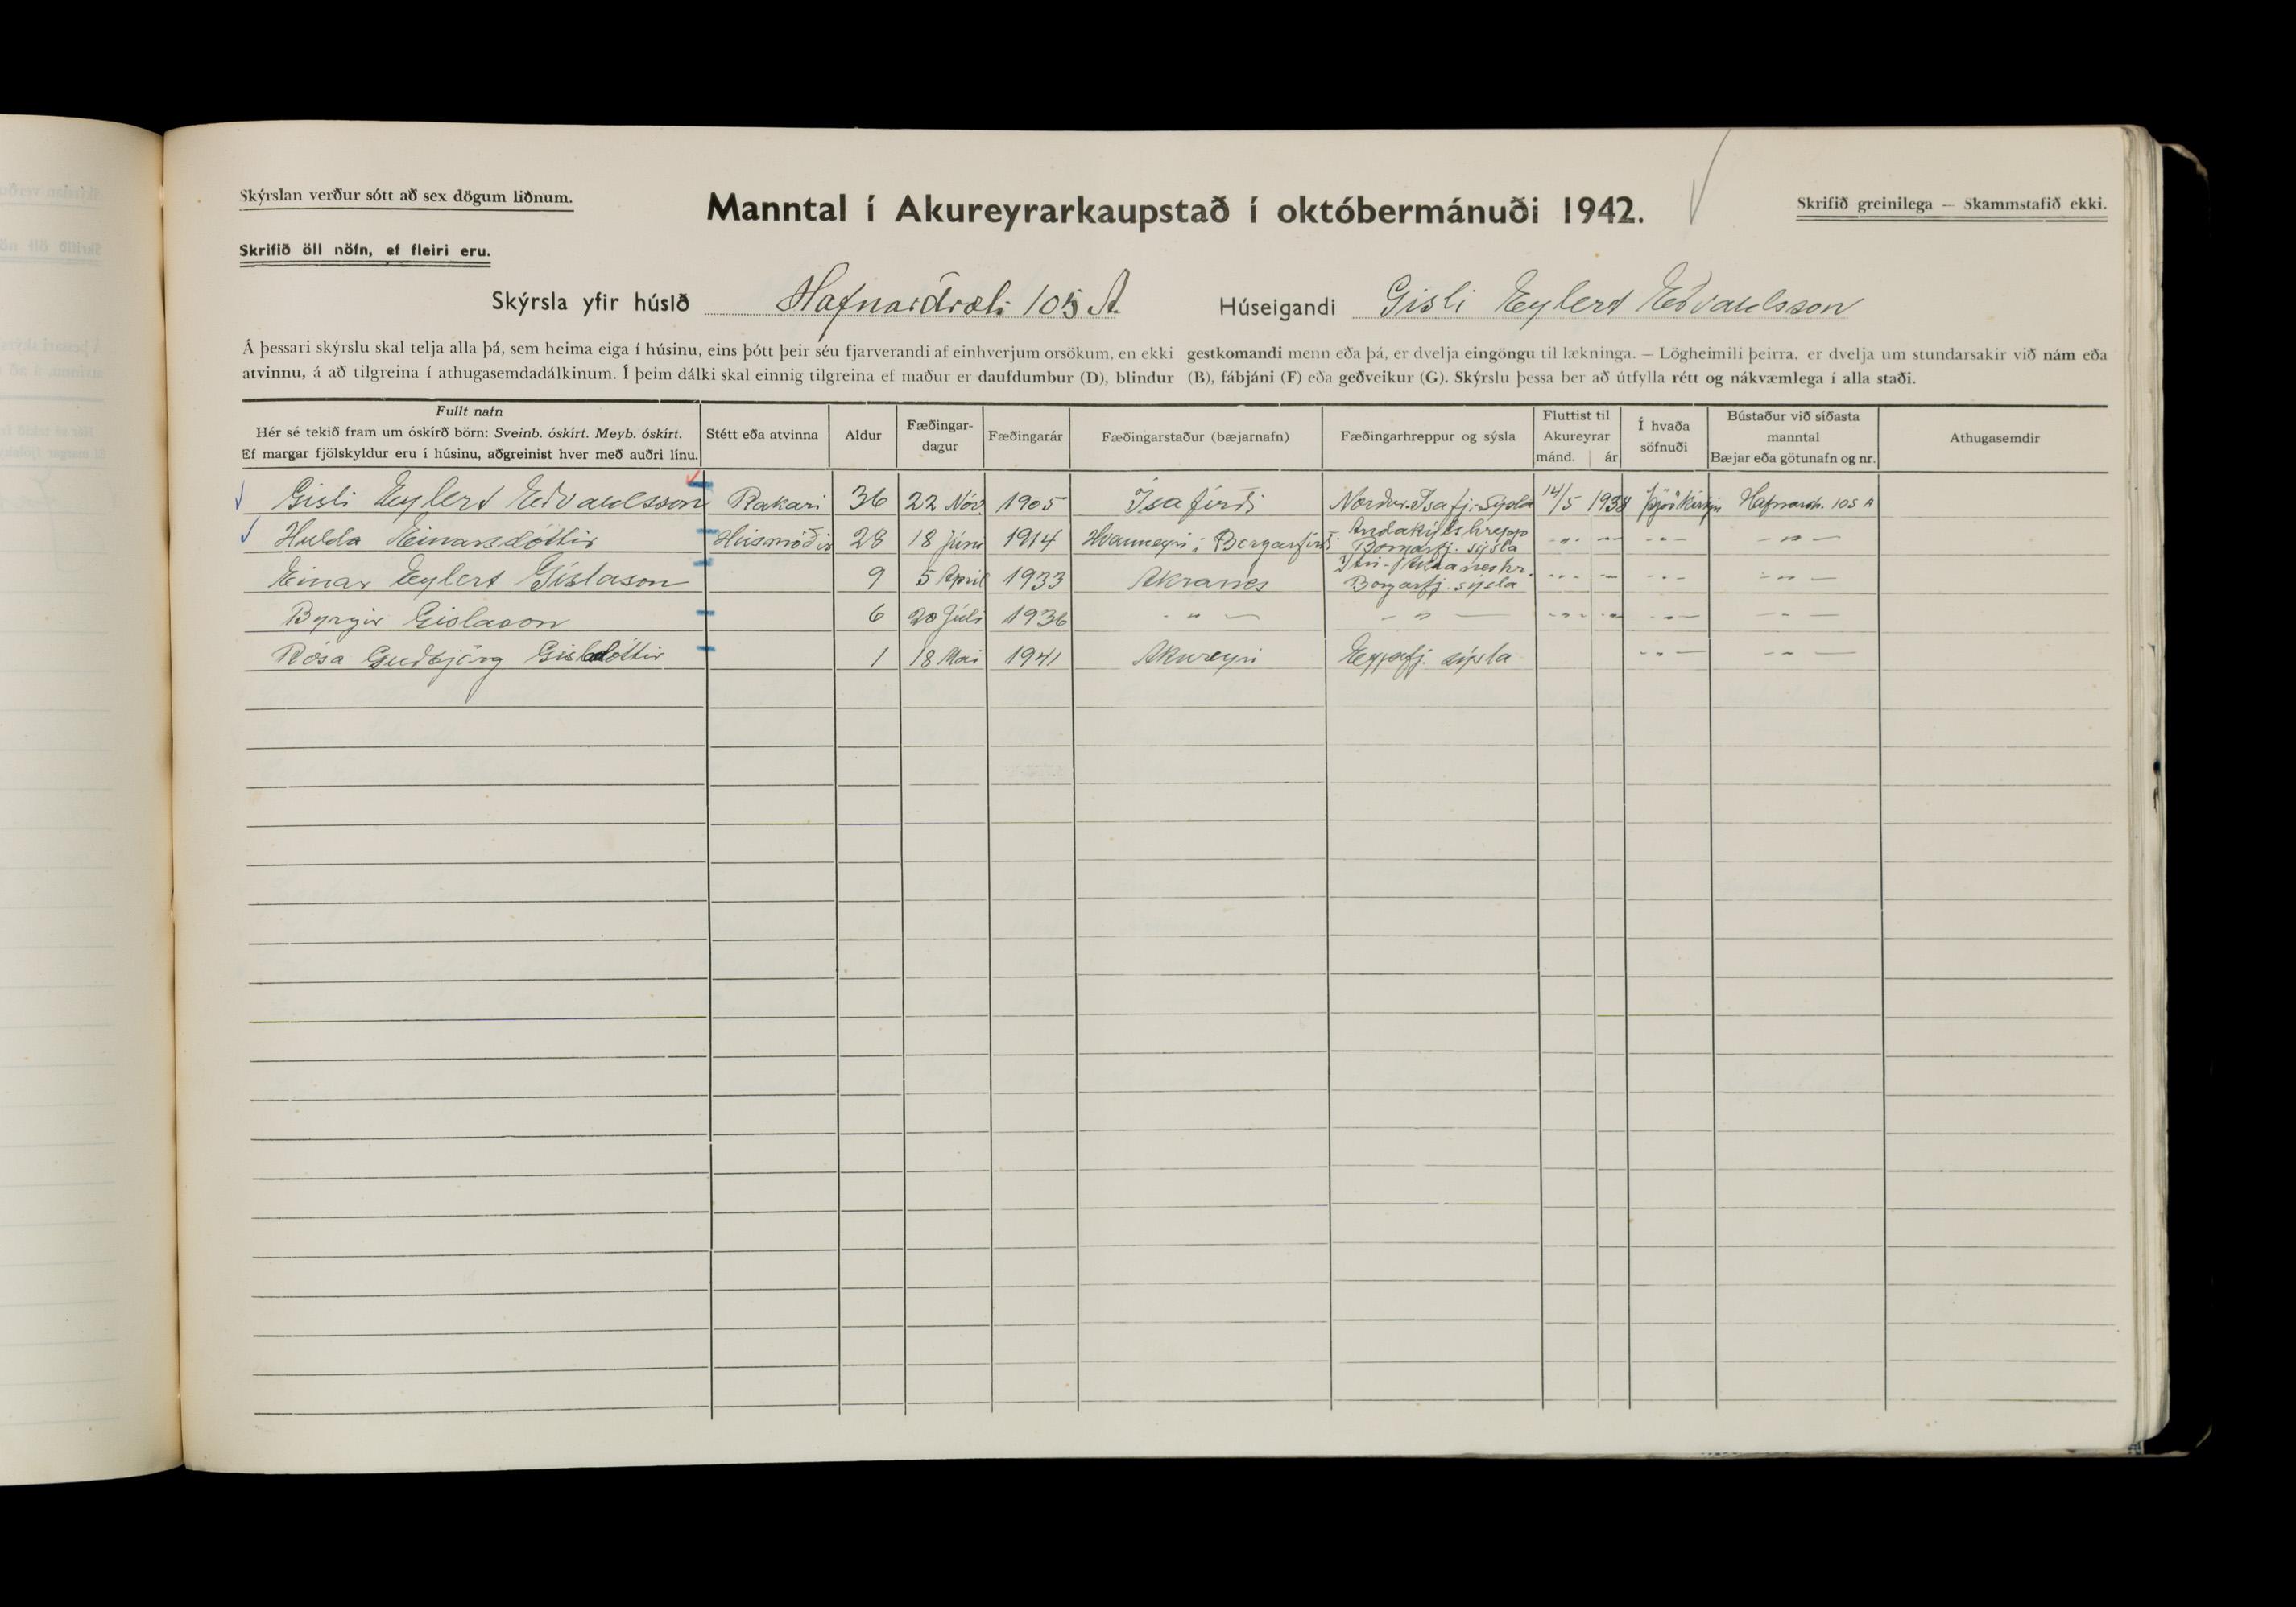 Skýrslan verður sótt að sex dögum liðnum.
Manntal í Akureyrarkaupstað í októbermánuði 1942.
Skrifið greinilega — Skammstafið ekki.
Skrifið öll nöfn, ef fleiri eru.
Skýrsla yfir húsið Hafnarstræti 105 A. Húseigandi Gisli Eylert Eðvaldsson
Á þessari skýrslu skal telja alla þá, sem heima eiga í húsinu, eins þótt þeir séu fjarverandi af einhverjum orsökum, en ekki gestkomandi menn eða þá, er dvelja eingöngu til lækninga. — Lögheimili þeirra, er dvelja um stundarsakir við nám eða
atvinnu, á að tilgreina í athugasemdadálkinum. Í þeim dálki skal einnig tilgreina ef maður er daufdumbur (D), blindur (B), fábjáni (F) eða geðveikur (G). Skýrslu þessa ber að útfylla rétt og nákvæmlega í alla staði.
Fullt nafn
Hér sé tekið fram um óskírð börn: Sveinb. óskírt. Meyb. óskírt.
Ef margar fjölskyldur eru í húsinu, aðgreinist hver með auðri línu.
Stétt eða atvinna
Aldur
Fæðingar-
dagur
Fæðingarár
Fæðingarstaður (bæjarnafn)
Fæðingarhreppur og sýsla
Fluttist til
Akureyrar
mánd. ár
Í hvaða
söfnuði
Bústaður við síðasta
manntal
Bæjar eða götunafn og nr.
Athugasemdir
Gisli Eylert Eðvaldsson Rakari 36 22 Nóv. 1905 Ísafirði Norður-Ísafj.-Sýsla 14/5 1938 Þjóðkirkjan Hafnarstr. 105 A
Hulda Einarsdóttir Húsmóðir 28 18 Júní 1914 Hvanneyri í Borgarfirði Andakýlshrepp Borgarfj. sýsla -"- -"- -"- -"-
Einar Eylert Gíslason 9 5 Apríl 1933 Akranes Ytri-Akraneshr. Borgarfj. sýsla -"- -"- -"- -"-
Byrgir Gislason 6 20 Júlí 1936 -"- -"- -"- -"- -"- -"-
Rósa Guðbjörg Gisladóttir 1 18 Mai 1941 Akureyri Eyjafj. sýsla -"- -"-